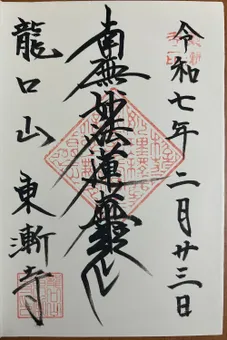 令和七年二月廿三日
南無妙法蓮華経
龍口山 東漸寺